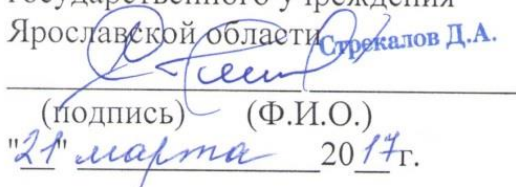 государственного учреждения
Ярославской области Стрекалов Д.А.
(подпись) (Ф.И.О.)
"21" марта 2017г.